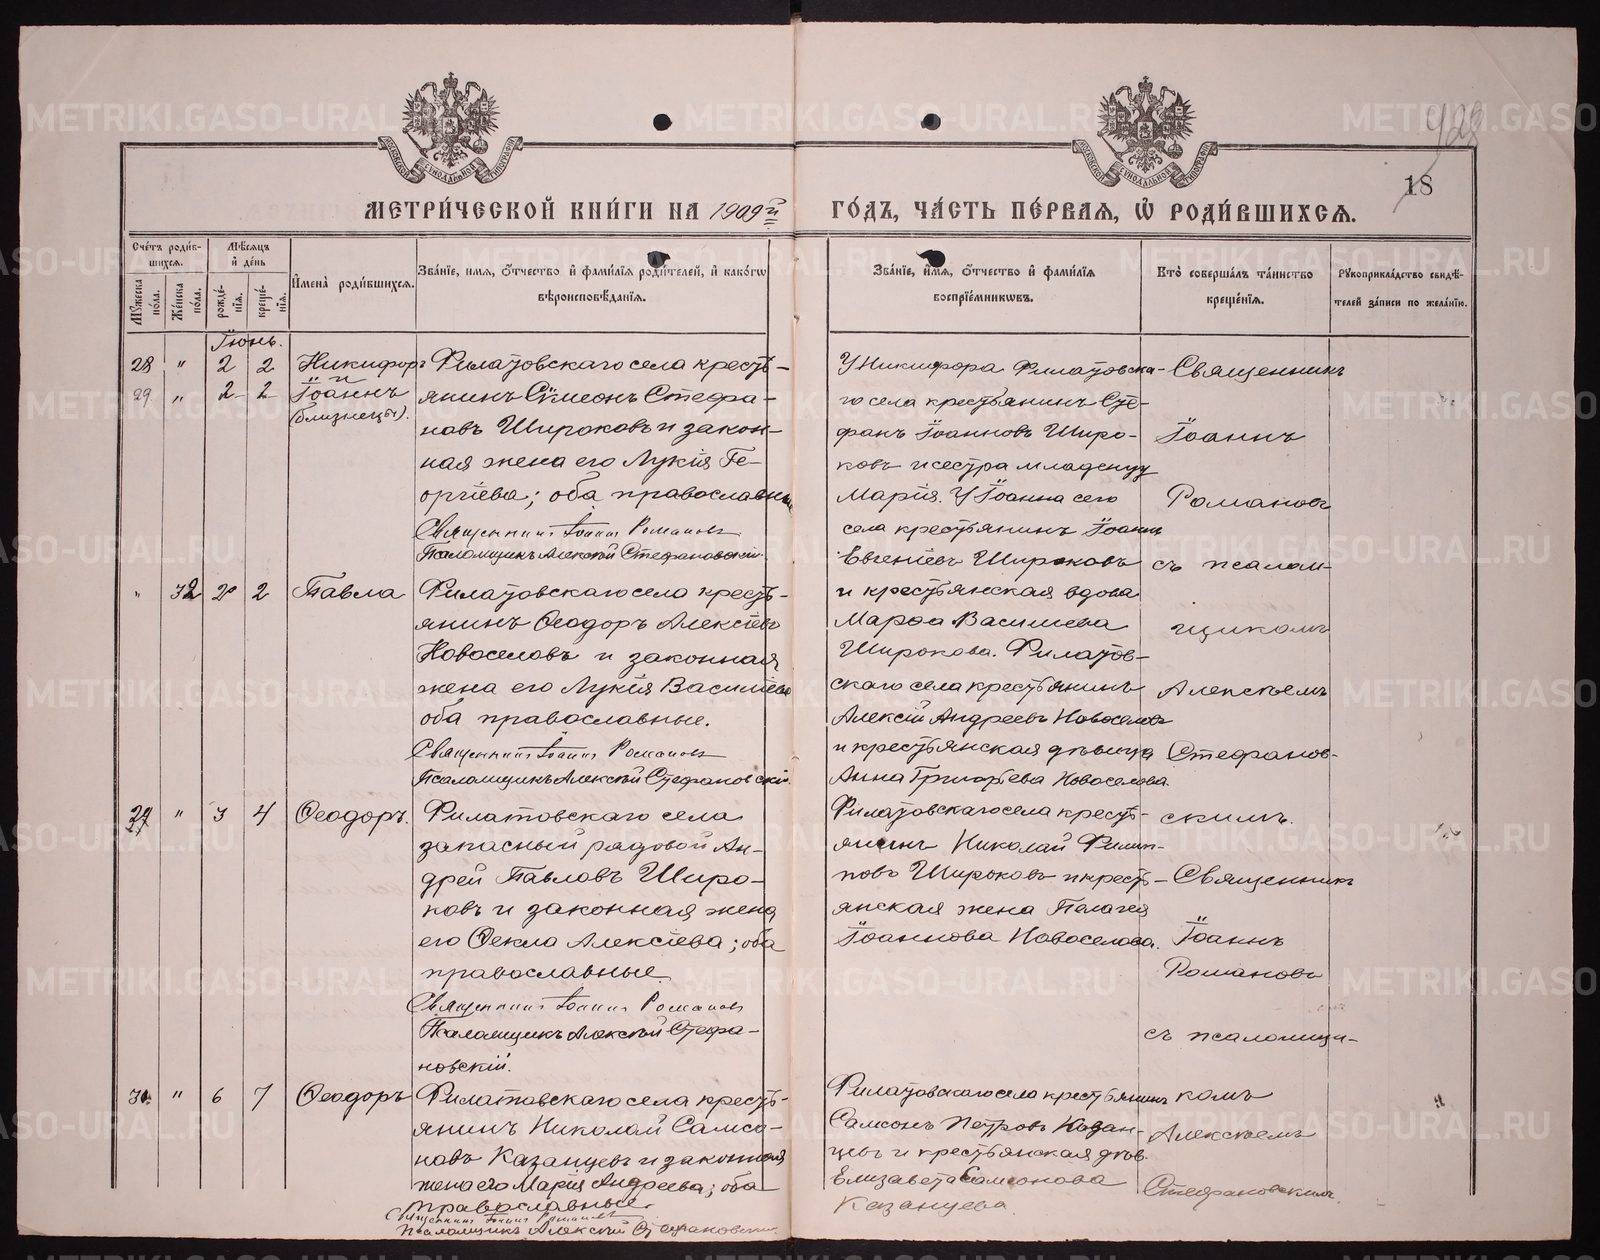 928
18
МЕТРИ́ЧЕСКОЙ КНИ́ГИ НА 1909й
ГО́ДЪ, ЧА́СТЬ ПЕ́РВАЯ, Ѡ҆ РОДИ́ВШИХСЯ.
Сче́тъ роди́в-
шихся.
Мѣ́сяцъ
и҆ де́нь
Мꙋ́жеска по́ла.
Же́нска по́ла.
рожде́-
нїя.
креще́-
нїя.
И҆мена̀ роди́вшихся.
Зва́нїе, и҆мя, ѻ҆́тчество и҆ фами́лїя роди́телей, и҆ како́гѡ
вѣроисповѣ́данїя.
Зва́нїе, и҆́мя, ѻ҆́тчество и҆ фами́лїя
воспрїе́мниковъ.
Кто̀ соверша́лъ та́инство
креще́нїя.
Рꙋкоприкла́дство свидѣ́-
телей за́писи по жела́нїю.
Іюнь.
28 " 2 2 Никифоръ
и
29 " 2 2 Іоаннъ
(близнецы).
Филатовскаго села кресть-
янинъ Сѵмеонъ Стефа-
новъ Широковъ и закон-
ная жена его Лукія Ге-
оргіева; оба православные
Священникъ Іоаннъ Романовъ
Псаломщикъ Алексѣй Стефановскій.
У Никифора Филатовска-
го села крестьянинъ Сте-
фанъ Іоанновъ Широ-
ковъ и сестра младенцу
Марія. У Іоанна сего
села крестьянинъ Іоаннъ
Евгеніевъ Широковъ
и крестьянская вдова
Марѳа Васильева
Широкова.
Священникъ
Іоаннъ
Романовъ
съ псалом-
щикомъ
Алексѣемъ
Стефанов-
скимъ.
" 32 2 2 Павла
Филатовскаго села кресть-
янинъ Ѳеодоръ Алексіевъ
Новоселовъ и законная
жена его Лукія Василіева
оба православные.
Священникъ Іоаннъ Романовъ
Псаломщикъ Алексѣй Стефановскій.
Филатов-
скаго села крестьянинъ
Алексій Андреевъ Новоселовъ
и крестьянская дѣвица
Анна Григорьева Новоселова.
" 3 4 Ѳеодоръ.
Филатовскаго села
запасный рядовой Ан-
дрей Павловъ Широ-
ковъ и законная жена
его Ѳекла Алексіева; оба
православные.
Священникъ Іоаннъ Романовъ
Псаломщикъ Алексѣй Стефа-
новскій.
Филатовскаго села кресть-
янинъ Николай Филип-
повъ Широковъ и кресть-
янская жена Пелагея
Іоаннова Новоселова.
Священникъ
Іоаннъ
Романовъ
съ псаломщи-
комъ
Алексѣемъ
Стефановскимъ.
" 6 7 Ѳеодоръ
Филатовскаго села кресть-
янинъ Николай Самсо-
новъ Казанцевъ и законная
жена его Марія Андреева; оба
православные.
Священникъ Іоаннъ Романовъ
Псаломщикъ Алексѣй Стефановскій
Филатовскаго села крестьянинъ
Самсонъ Петровъ Казан-
цевъ и крестьянская дѣв.
Елизавета Самсонова
Казанцева.
METRIKI.GASO-URAL.RU